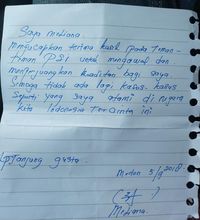 Saya Meliana.
mengucapkan terima kasih pada Teman-
Teman PSI untuk mengawal dan
memperjuangkan keadilan bagi saya.
Semoga tidak ada lagi kasus-kasus
Seperti yang saya alami di negara
kita Indonesia Tercinta ini
Tanjung gusta.
Medan 5/9 2018.
Meliana.